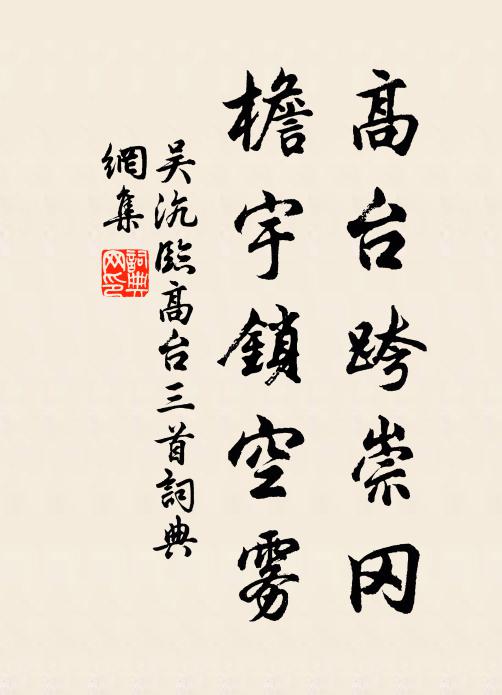 高台跨崇冈
檐宇鎖空雾
吴沆臨高台三首詞典
網集
詞典网印